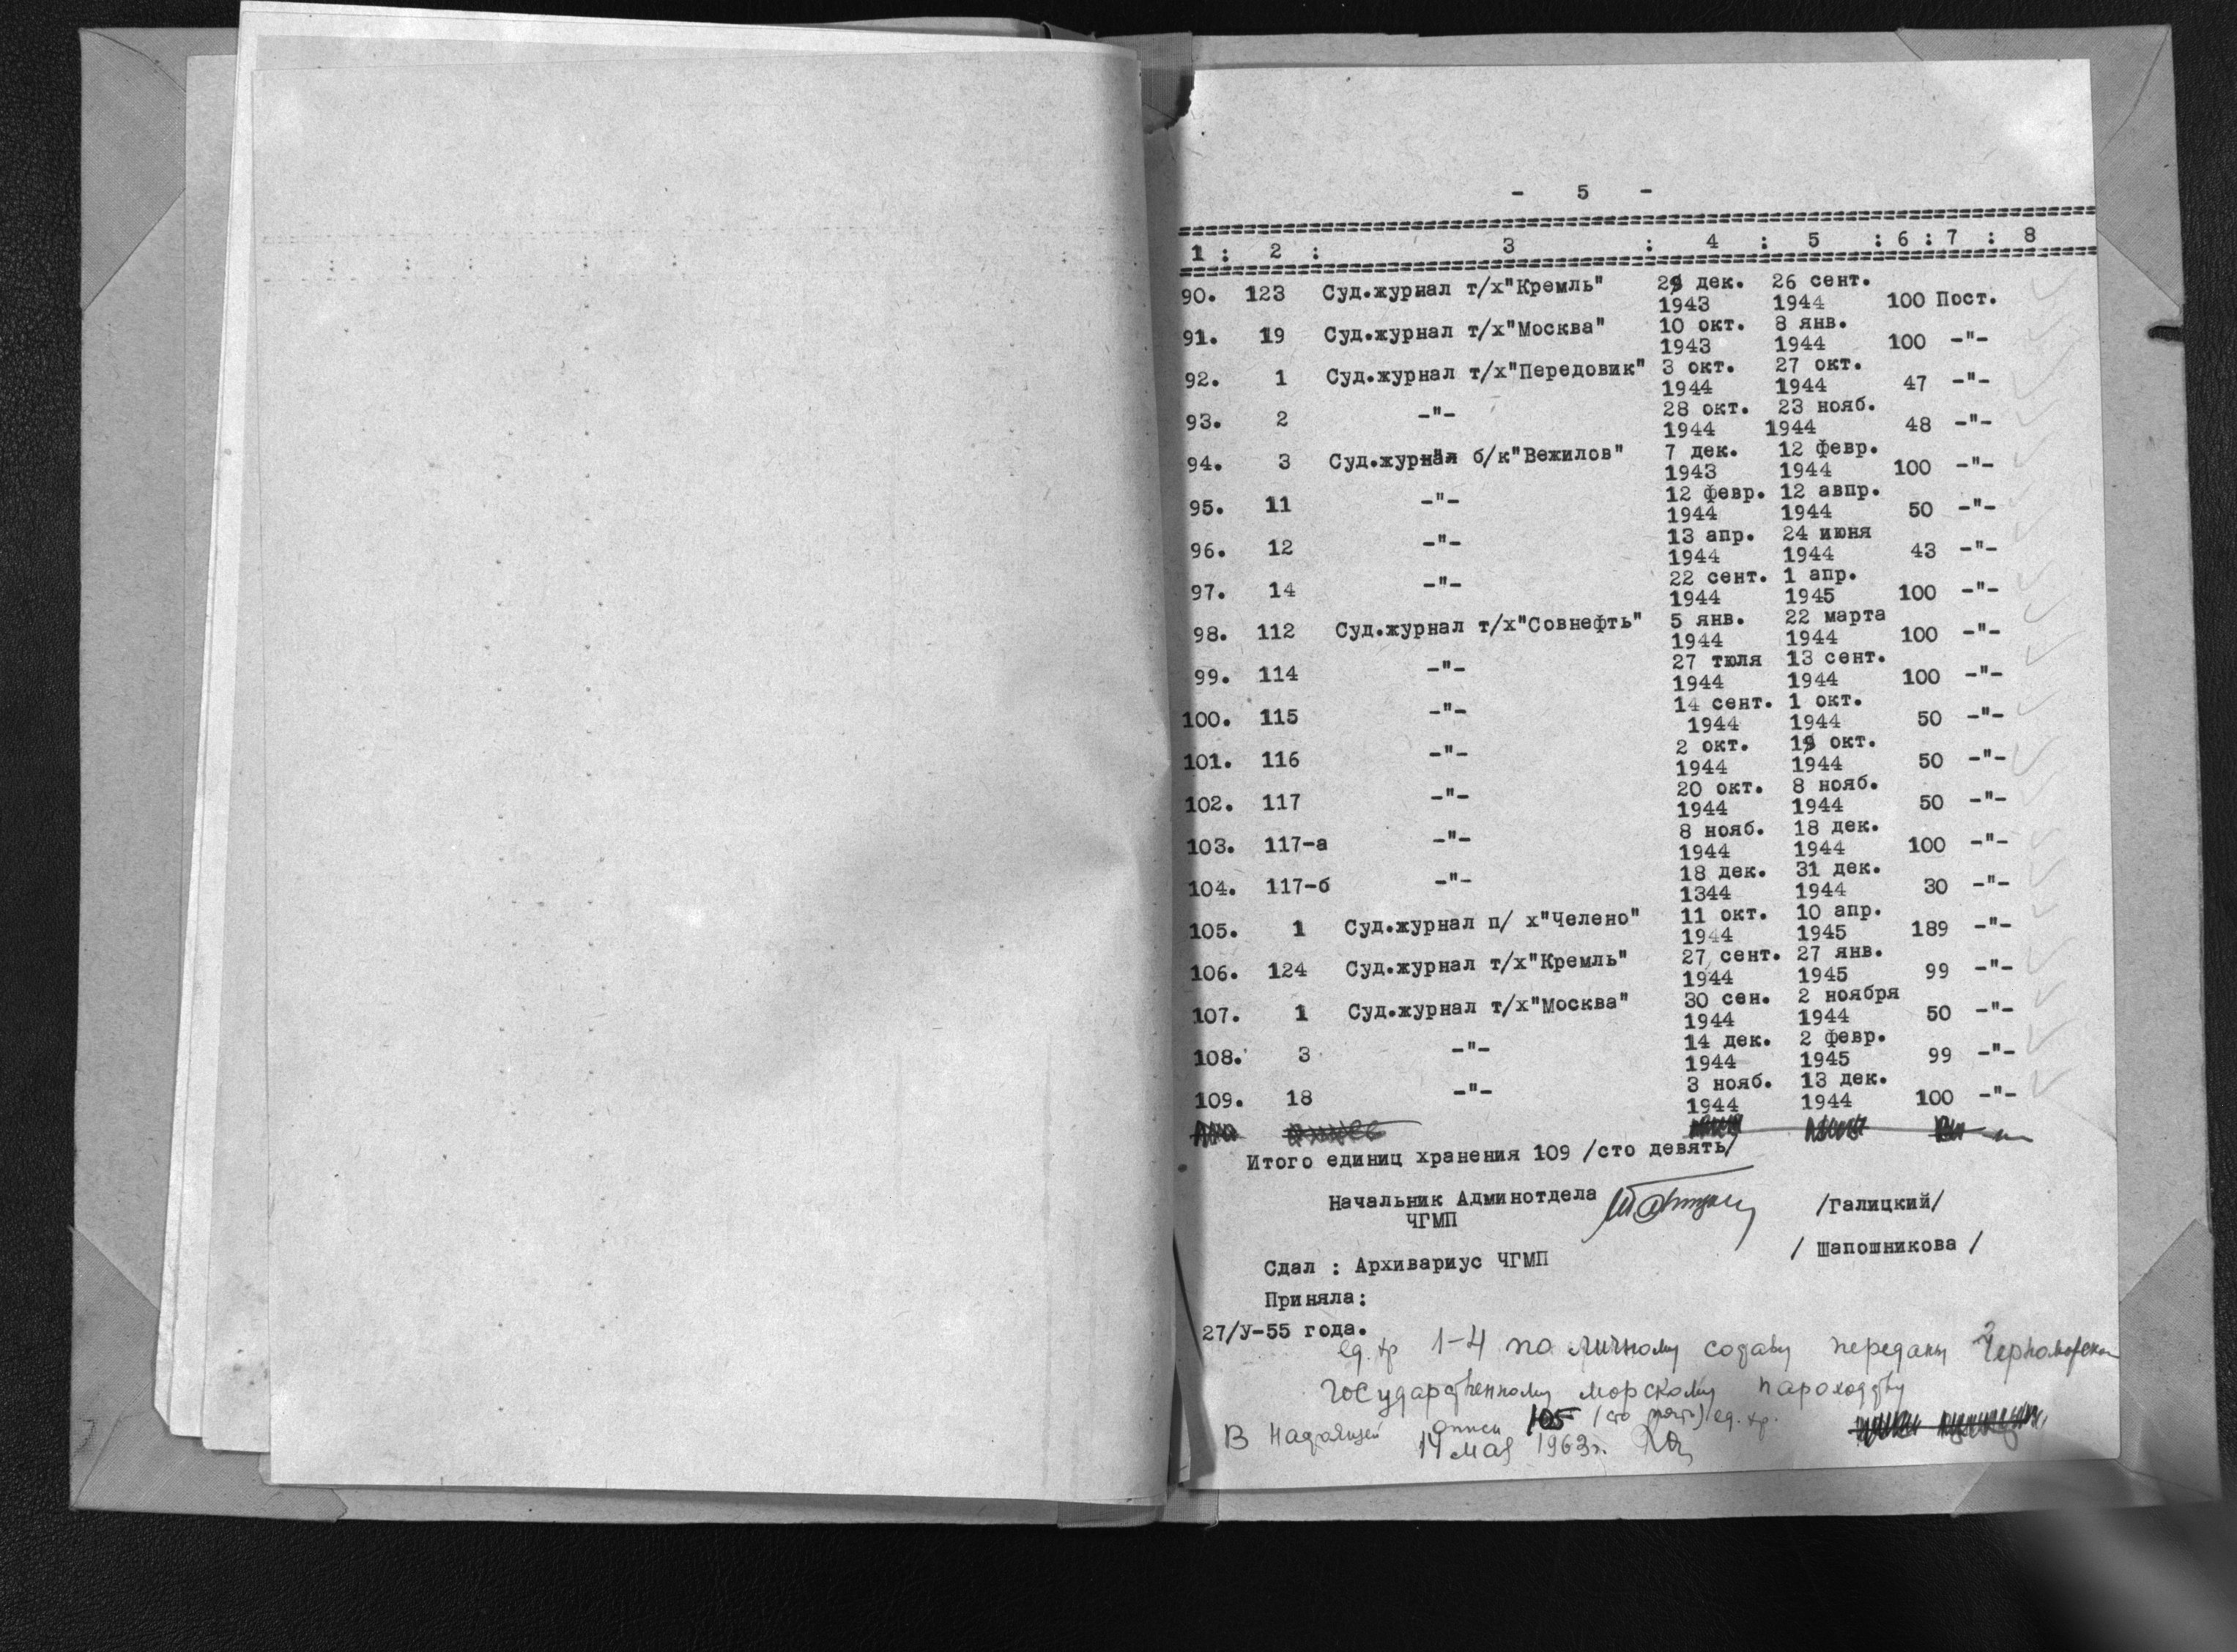 - 5 -
1 : 2 : 3 : 4 : 5 : 6 : 7 : 8
90. 123 Суд.журнал т/х"Кремль" 29 дек. 26 сент.
1943 1944 100 Пост.
91. 19 Суд.журнал т/х"Москва" 10 окт. 8 янв.
1943 1944 100 -"-
92. 1 Суд.журнал т/х"Передовик" 3 окт. 27 окт.
1944 1944 47 -"-
93. 2 -"- 28 окт. 23 нояб.
1944 1944 48 -"-
94. 3 Суд.журнал б/к"Вежилов" 7 дек. 12 февр.
1943 1944 100 -"-
95. 11 -"- 12 февр. 12 авпр.
1944 1944 50 -"-
96. 12 -"- 13 апр. 24 июня
1944 1944 43 -"-
97. 14 -"- 22 сент. 1 апр.
1944 1945 100 -"-
98. 112 Суд.журнал т/х"Совнефть" 5 янв. 22 марта
1944 1944 100 -"-
99. 114 -"- 27 тюля 13 сент.
1944 1944 100 -"-
100. 115 -"- 14 сент. 1 окт.
1944 1944 50 -"-
101. 116 -"- 2 окт. 19 окт.
1944 1944 50 -"-
102. 117 -"- 20 окт. 8 нояб.
1944 1944 50 -"-
103. 117-а -"- 8 нояб. 18 дек.
1944 1944 100 -"-
104. 117-б -"- 18 дек. 31 дек.
1344 1944 30 -"-
105. 1 Суд.журнал п/ х"Челено" 11 окт. 10 апр.
1944 1945 189 -"-
106. 124 Суд.журнал т/х"Кремль" 27 сент. 27 янв.
1944 1945 99 -"-
107. 1 Суд.журнал т/х"Москва" 30 сен. 2 ноября
1944 1944 50 -"-
108. 3 -"- 14 дек. 2 февр.
1944 1945 99 -"-
109. 18 -"- 3 нояб. 13 дек.
1944 1944 100 -"-
Итого единиц хранения 109 /сто девять/
Начальник Админотдела /Галицкий/
ЧГМП
/ Шапошникова /
Сдал : Архивариус ЧГМП
Приняла:
27/У-55 года.
ед. хр 1-4 по личному составу переданы Черноморском
Государственному морскому пароходству
В настоящей описи 105 (сто пять) ед. хр.
14 мая 1963г.